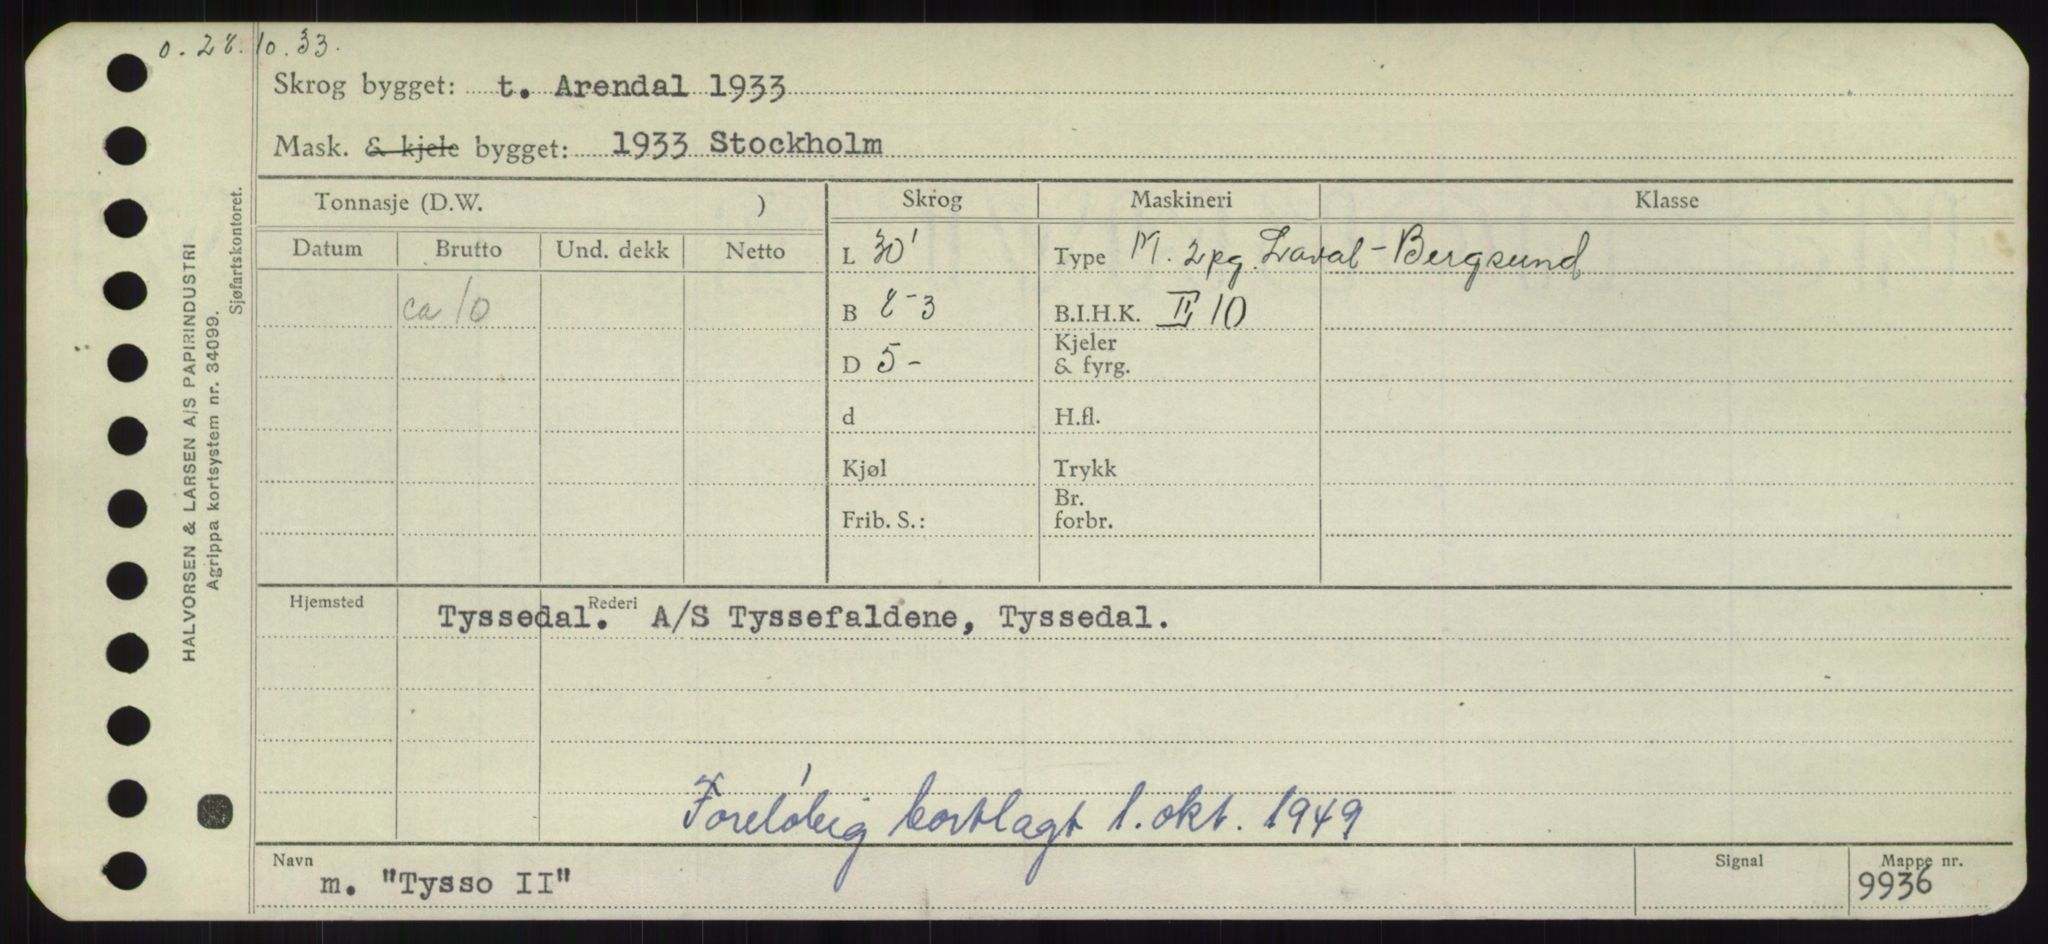 o. 28. 10. 33.
Skrog bygget: t. Arendal 1933
Mask. & kjele bygget: 1933 Stockholm
Tonnasje (D.W. ) Skrog Maskineri Klasse
Datum Brutto Und. dekk Netto
L 30' Type M. 2pg. Laval-Bergsund
ca 10 B 8-3 B.I.H.K. II 10
D 5- Kjeler & fyrg.
d H.fl.
Kjøl Trykk
Frib. S.: Br. forbr.
Hjemsted Rederi
Tyssedal. A/S Tyssefaldene, Tyssedal.
Foreløbig bortlagt 1. okt. 1949
Navn Signal Mappe nr.
m. "Tysso II" 9936
HALVORSEN & LARSEN A/S PAPIRINDUSTRI
Agrippa kortsystem nr. 34099.
Sjøfartskontoret.